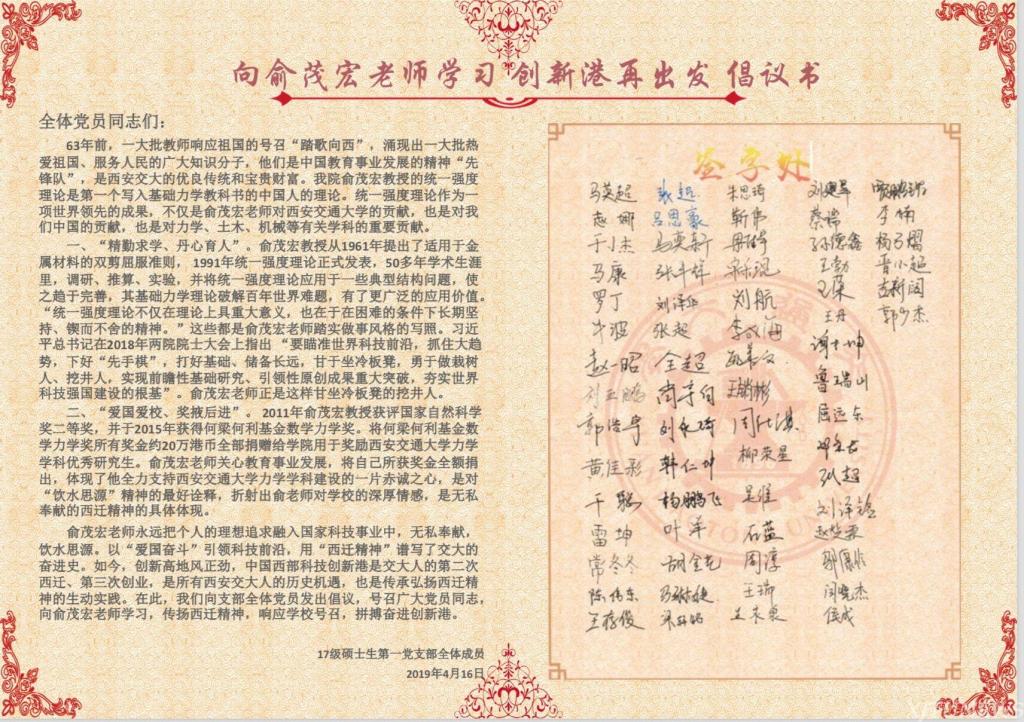 向俞茂宏老师学习 创新港再出发 倡议书
全体党员同志们：
63年前，一大批教师响应祖国的号召“踏歌向西”，涌现出一大批热
爱祖国、服务人民的广大知识分子，他们是中国教育事业发展的精神“先
锋队”，是西安交大的优良传统和宝贵财富。我院俞茂宏教授的统一强度
理论是第一个写入基础力学教科书的中国人的理论。统一强度理论作为一
项世界领先的成果，不仅是俞茂宏老师对西安交通大学的贡献，也是对我
们中国的贡献，也是对力学、土木、机械等有关学科的重要贡献。
一、“精勤求学、丹心育人”。俞茂宏教授从1961年提出了适用于金
属材料的双剪屈服准则， 1991年统一强度理论正式发表，50多年学术生涯
里，调研、推算、实验，并将统一强度理论应用于一些典型结构问题，使
之趋于完善，其基础力学理论破解百年世界难题，有了更广泛的应用价值。
“统一强度理论不仅在理论上具重大意义，也在于在困难的条件下长期坚
持、锲而不舍的精神。”这些都是俞茂宏老师踏实做事风格的写照。习近
平总书记在2018年两院院士大会上指出 “要瞄准世界科技前沿，抓住大趋
势，下好“先手棋”，打好基础、储备长远，甘于坐冷板凳，勇于做栽树
人、挖井人，实现前瞻性基础研究、引领性原创成果重大突破，夯实世界
科技强国建设的根基”。俞茂宏老师正是这样甘坐冷板凳的挖井人。
二、“爱国爱校、奖掖后进”。 2011年俞茂宏教授获评国家自然科学
奖二等奖，并于2015年获得何梁何利基金数学力学奖。将何梁何利基金数
学力学奖所有奖金约20万港币全部捐赠给学院用于奖励西安交通大学力学
学科优秀研究生。俞茂宏老师关心教育事业发展，将自己所获奖金全额捐
出，体现了他全力支持西安交通大学力学学科建设的一片赤诚之心，是对
“饮水思源”精神的最好诠释，折射出俞老师对学校的深厚情感，是无私
奉献的西迁精神的具体体现。
俞茂宏老师永远把个人的理想追求融入国家科技事业中，无私奉献，
饮水思源。以“爱国奋斗”引领科技前沿，用“西迁精神”谱写了交大的
奋进史。如今，创新高地风正劲，中国西部科技创新港是交大人的第二次
西迁、第三次创业，是所有西安交大人的历史机遇，也是传承弘扬西迁精
神的生动实践。在此，我们向支部全体党员发出倡议，号召广大党员同志，
向俞茂宏老师学习，传扬西迁精神，响应学校号召，拼搏奋进创新港。
17级硕士生第一党支部全体成员
2019年4月16日
签字处
马英超 张超 朱思琦
赵娜 吕思豪 靳伟 蔡瑞 李楠
于小杰 马英新 孙德鑫
马康 张斗烨 王勃 晋小超
罗丁 刘泽华 刘航
牛浥 张超 王丹 郭少杰
赵一昭 全超 谢士坤
刘玉鹏 尚宇向 鲁瑞山
郭浩宇 刘永琦 屈远东
黄佳彬 韩仁坤 柳荣星
干聪 杨鹏飞 吴催 张超
雷坤 叶萍 石蓝
常冬冬 胡金龙 周淳
陈伟东 王瑞 闫晓杰
王存俊 伍成